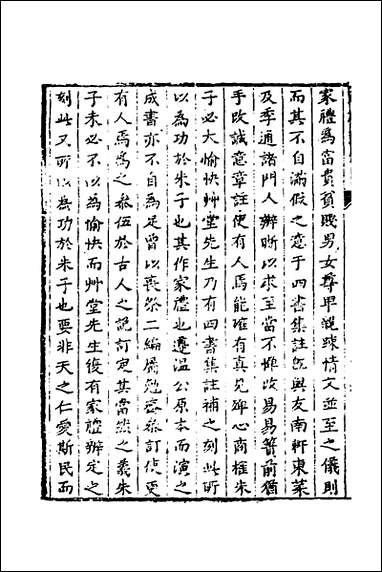 家禮為富貴貧賤男女尊卑親疎情文並至之儀則
而其不自滿假之意于四書集註旣與友南軒東萊
及季通諸門人辯晰以求至當不惟改易易簀前猶
手改誠意章註使有人焉能確有真見殫心商榷朱
子必大愉快艸堂先生乃有四書集註補之刻此所
以為功於朱子也其作家禮也遵溫公原本而演之
成書亦不自為足嘗以喪祭二編屬勉齋叅訂使更
有人焉為之叅伍於古人之說訂定其當然之義朱
子未必不以為愉快而艸堂先生後有家禮辨定之
刻此又所以為功於朱子也要非天之仁愛斯民而